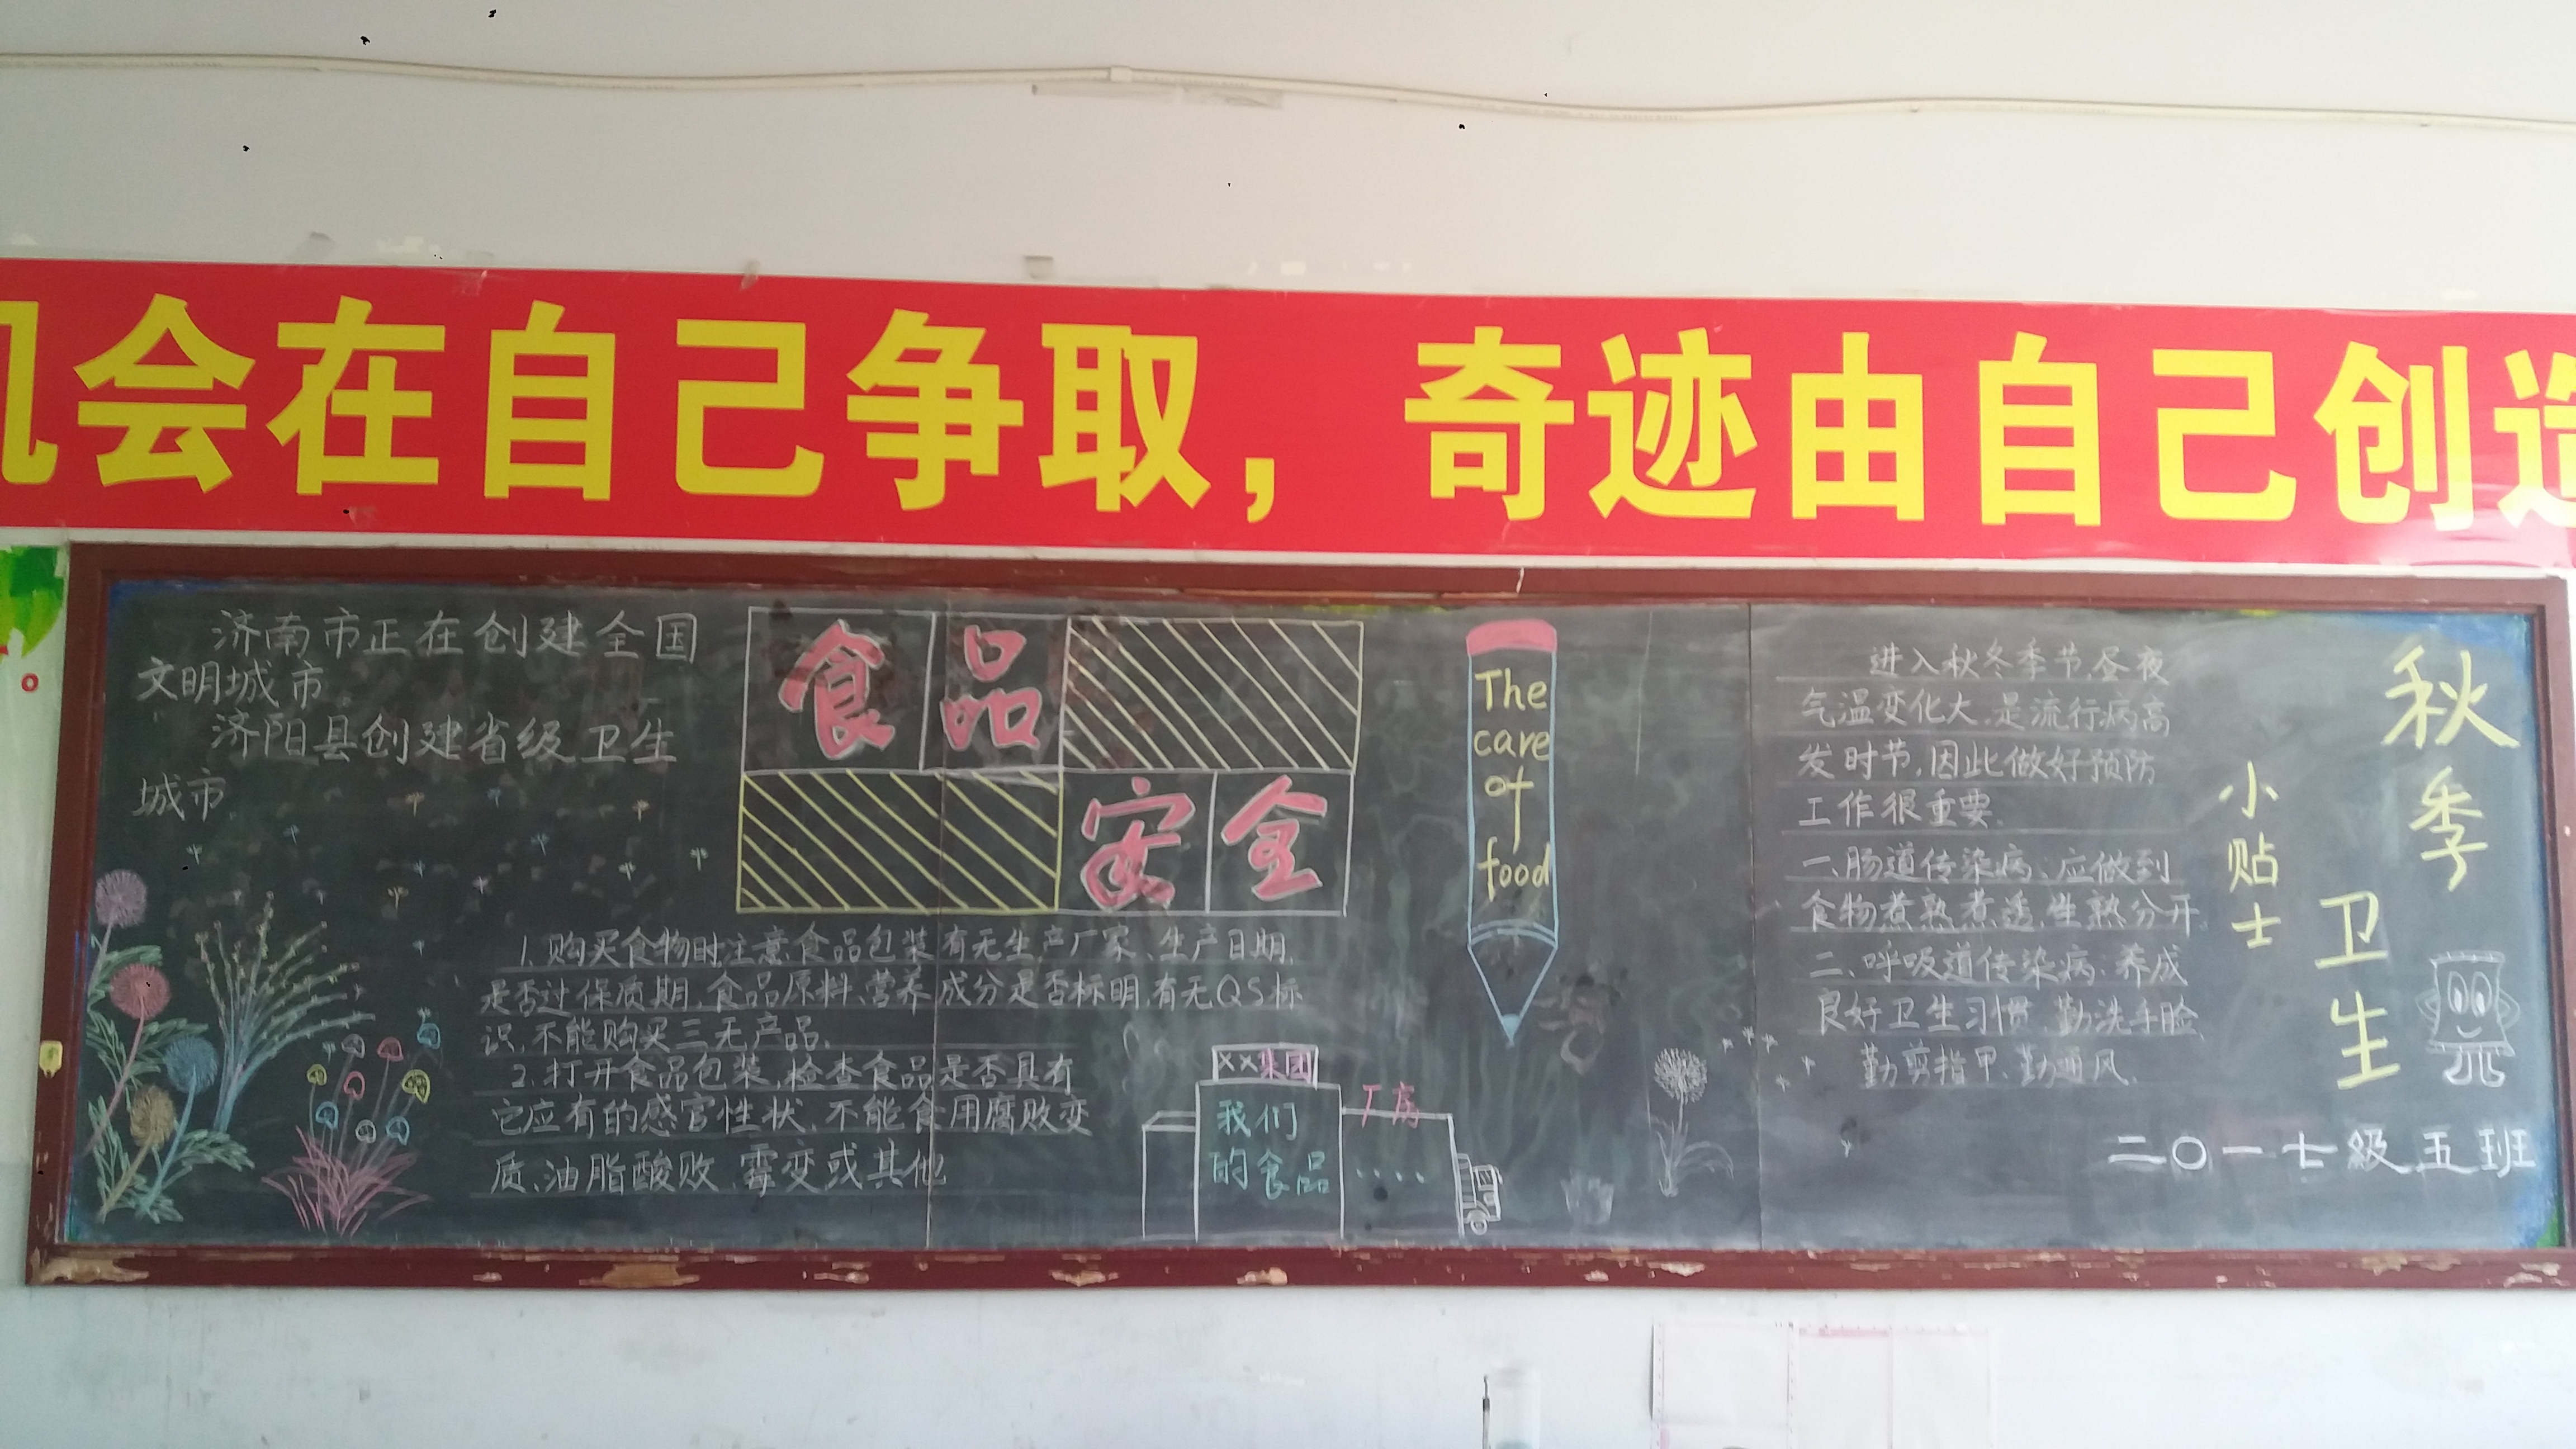 机会在自己争取，奇迹由自己创造
济南市正在创建全国
文明城市
济阳县创建省级卫生
城市
食品
安全
1.购买食物时注意食品包装有无生产厂家、生产日期,
是否过保质期,食品原料、营养成分是否标明,有无QS标
识,不能购买三无产品.
2.打开食品包装,检查食品是否具有
它应有的感官性状,不能食用腐败变
质、油脂酸败、霉变或其他
The
care
of
food
××集团
厂房
我们
的食品
....
进入秋冬季节,昼夜
气温变化大,是流行病高
发时节,因此做好预防
工作很重要.
一、肠道传染病、应做到
食物煮熟煮透,生熟分开.
二、呼吸道传染病:养成
良好卫生习惯,勤洗手脸,
勤剪指甲、勤通风.
秋季
卫生
小贴士
二〇一七级五班